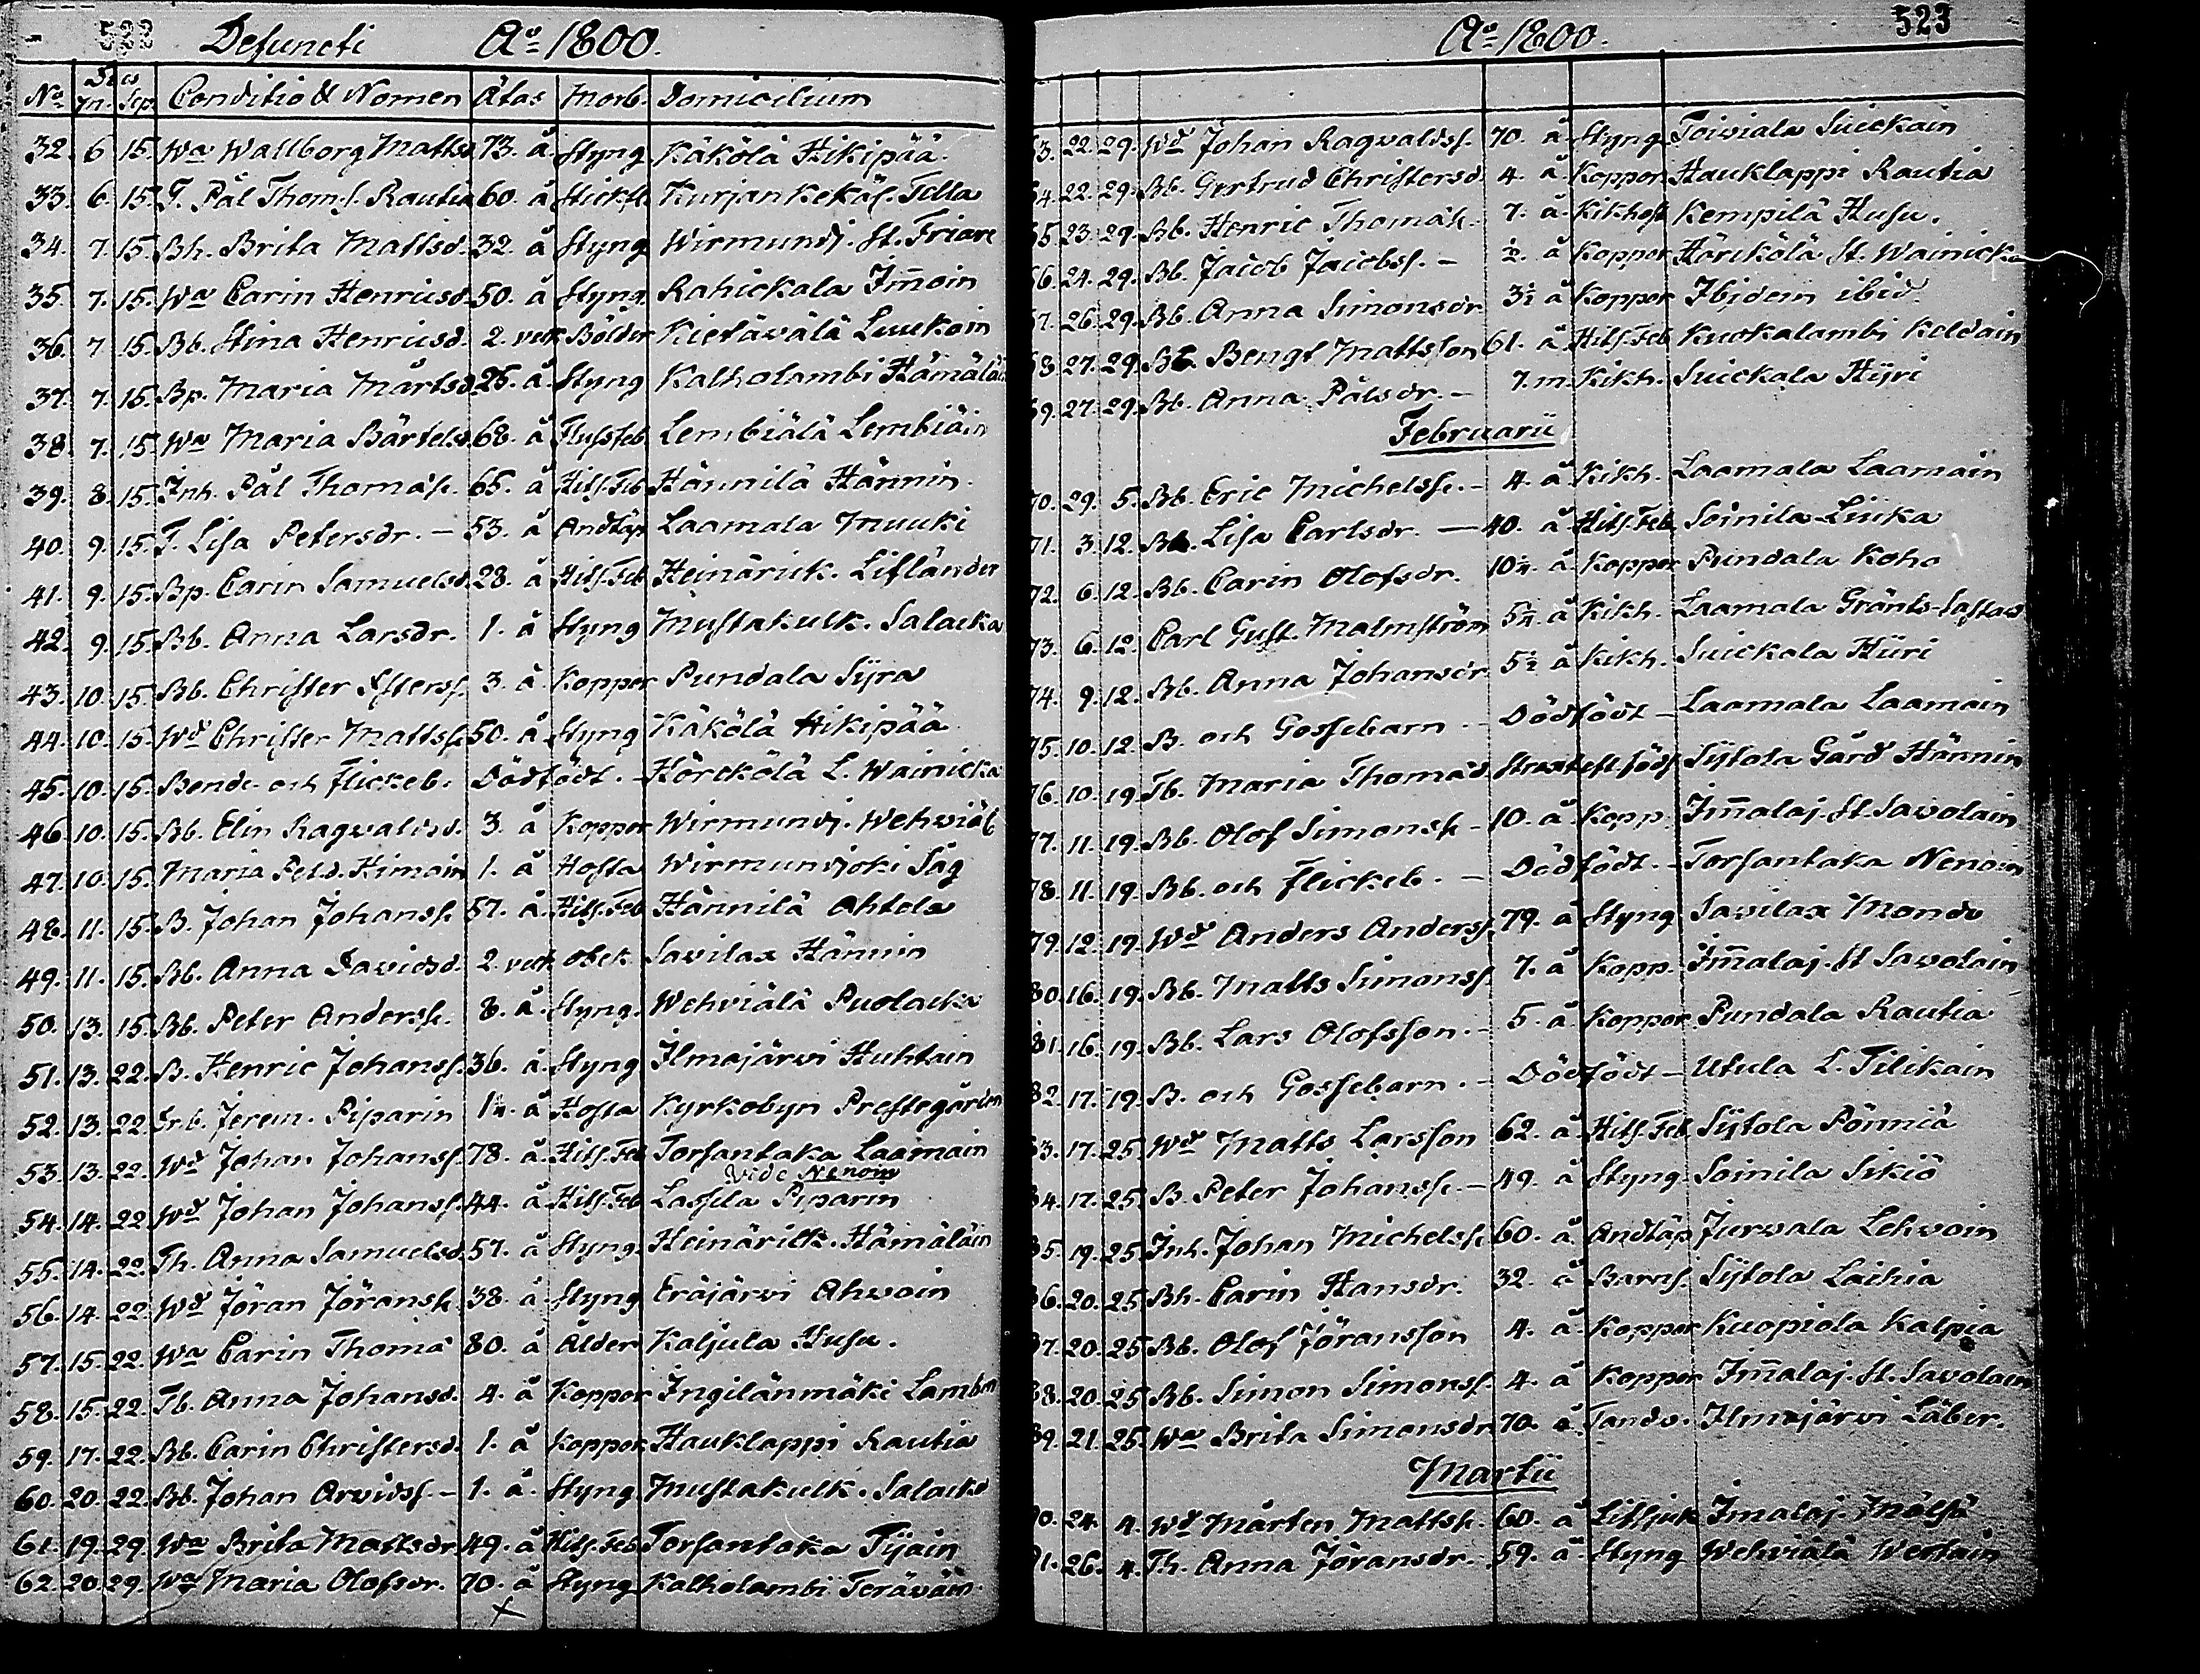 522 Defuncti Ao 1800.
No Dies Conditio & Nomen Ätas Morb. Domicilium
Mn. Sep.
32. 6 15. Wa Wallborg Matts 73. å Styng Käkölä Hikipää.
33. 6. 15. T. Pål Thoms. Rautia 60. å Stickfl. Kurjankekäs. Tella
34. 7. 15. Bh. Brita Mattsd. 32. å Styng Wirmundj. St. Friare
35. 7. 15. Wa Carin Henricsd. 50. å Styng. Rahickala Im̄oin
36. 7 15. Bb. Stina Henricsd. 2. veck Bölder Kietäwälä Luukoin
37. 7. 15. Bp. Maria Mårtsd. 26. å. Styng Kalholambi Hämäläin
38. 7. 15. Wa Maria Bärtels 68. å Flussfeb. Lembiälä Lembiäin
39. 8. 15. Inh. Pål Thomäs. 65. å Hits. Feb Hännilä Hännin.
40. 9. 15. T. Lisa Petersdr. – 53. å Andtäp Laamala Muuki
41. 9. 15. Bp. Carin Samuelsd. 28. å Hits. Feb Heinärick. Lifländer
42. 9. 15. Bb. Anna Larsdr. 1. å Styng Mustakulk. Salacka
43. 10. 15. Bb. Christer Esters. 3. å Koppor Pundala Syra
44. 10. 15. Wd Christer Mattss. 50. å Styng Käkölä Hikipää
45. 10. 15. Bonde och Flickeb. Dödfödt. – Hörckölä L. Wainicka
46. 10. 15. Bb. Elin Ragvaldsd. 3. å Koppor Wirmundj. Wehwiäl
47. 10. 15. Maria Petd. Kimoin 1. å Hosta Wirmundjoki Såg
48. 11. 15. B. Johan Johanss. 57. å. Hits. Feb Hännilä Ahtela
49. 11. 15. Bb. Anna Davidsd. 2. veck obek Savilax Hännin
50. 13. 15. Bb. Peter Anderss. 8. å. Styng. Wehviälä Puolacka
51. 13. 22. B. Henric Johanss. 36. å. Styng Ilmajärvi Huhtain
52. 13. 22. Jerem. Piparin å Hosta Kyrkobyn Prestegården
53. 13. 22. Wd Johan Johanss. 78. å. Hits. Feb Torsantaka Laamain
vide Nenoin
54. 14. 22 Wd Johan Johanss. 44. å Hits. Feb Lassila Piparin
55. 14. 22. Th. Anna Samuelsd. 57. å Styng. Heinärick. Hämäläin
56. 14 22. Wd Jöran Jöranss. 38. å Styng Eräjärvi Ahwoin
57. 15. 22. Wa Carin Thomä 80. å Ålder Kaljula Husu.
58. 15. 22. Tb. Anna Johansd. 4. å Koppor Ingilänmäki Lamb
59. 17. 22. Bb. Carin Christersd. 1. å Koppor Hauklappi Rautia
60. 20. 22. Bb. Johan Arvidss. – 1. å. Styng Mustakulk. Salacka
61. 19. 29 Wa Brita Mattsdr. 49. å Hits. Feb Torsantaka Tijain
62. 20. 29. Wa Maria Olofsdr. 70. å Styng Kalholambi Teräwäin
Ao 1800. 523
3. 22. 29. Wd Johan Ragvaldss. 70. å Styng Toiviala Suickain
4. 22. 29. Bb. Gertrud Christersd. 4. å Koppor Hauklappi Rautia
5 23. 29. Bb. Henric Thomäs. 7. å. Kikhost Kempilä Husu.
6. 24. 29. Bb. Jacob Jacobss. – ½. å Koppor Hörckölä St. Wainicka
7. 26. 29. Bb. Anna Simonsdr. 3½ å Koppor Ibidem ibid.
8. 27. 29. Bengt Mattsson 61. å Hits. Feb Kuokalambi Koldain
9. 27. 29. Bb. Anna Pålsdr. – 7. m. Kikh. Suickala Hyri
Februarii
70. 29. 5. Bb. Eric Michelss. – 4. å Kikh. Laamala Laamain
71. 3. 12. Lisa Carlsdr. – 40. å Hits. Feb. Soinila Liuka
72. 6. 12. Bb. Carin Olofsdr. å Koppor Pundala Koho
73. 6. 12. Carl Gust. Malmström å Kikh. Laamala Gränts-Tastad
74. 9. 12. Bb. Anna Johansdr 5½ å Kikh. Suickala Hüri
75. 10. 12. B. och Gossebarn. – Dödfödt – Laamala Laamain
76. 10. 19. Tb. Maria Thomäd. Strax eft. föds. Sytola Gård Hännin
77. 11. 19. Bb. Olof Simonss – 10. å Kopp. Im̄alaj. St. Savolain
78. 11. 19. Bb. och Flickeb. – Dödfödt. – Torsantaka Nenoin
79. 12. 19. Wd Anders Anderss. 79. å Styng Savilax Mondo
80. 16. 19. Bb. Matts Simonss. 7. å Kopp. Im̄alaj. St Savolain
81. 16. 19. Bb. Lars Olofsson. – 5. å. Koppor Pundala Rautia
82. 17. 19. B. och Gossebarn. – Dödfödt – Utula L. Tilikain
3. 17. 25 Wd Matts Larsson 62. å. Hits. Feb. Sytola Pönniä
4. 17. 25. B. Peter Johanss. – 49. å Styng Soinila Sikiö
5. 19. 25 Inh. Johan Michelss. 60. å Andtäp Jurvala Lehvoin
6. 20. 25 Bh. Carin Hansdr. 32. å Barns. Sytola Laihia
7. 20. 25 Bb. Olof Jöransson 4. å Koppor Kuopiola Kalpia
8. 20. 25 Bb. Simon Simonss. 4. å Koppor Im̄alaj. St. Savolain
9. 21. 25. Wa Brita Simonsdr 70. å Tandv. Ilmajärvi Läber.
Martii
0. 24. 4. Wd Mårten Mattss. 60. å Imalaj. Mölsä
1. 26. 4. Th. Anna Jöransdr. 59. å Styng Wehviälä Westain